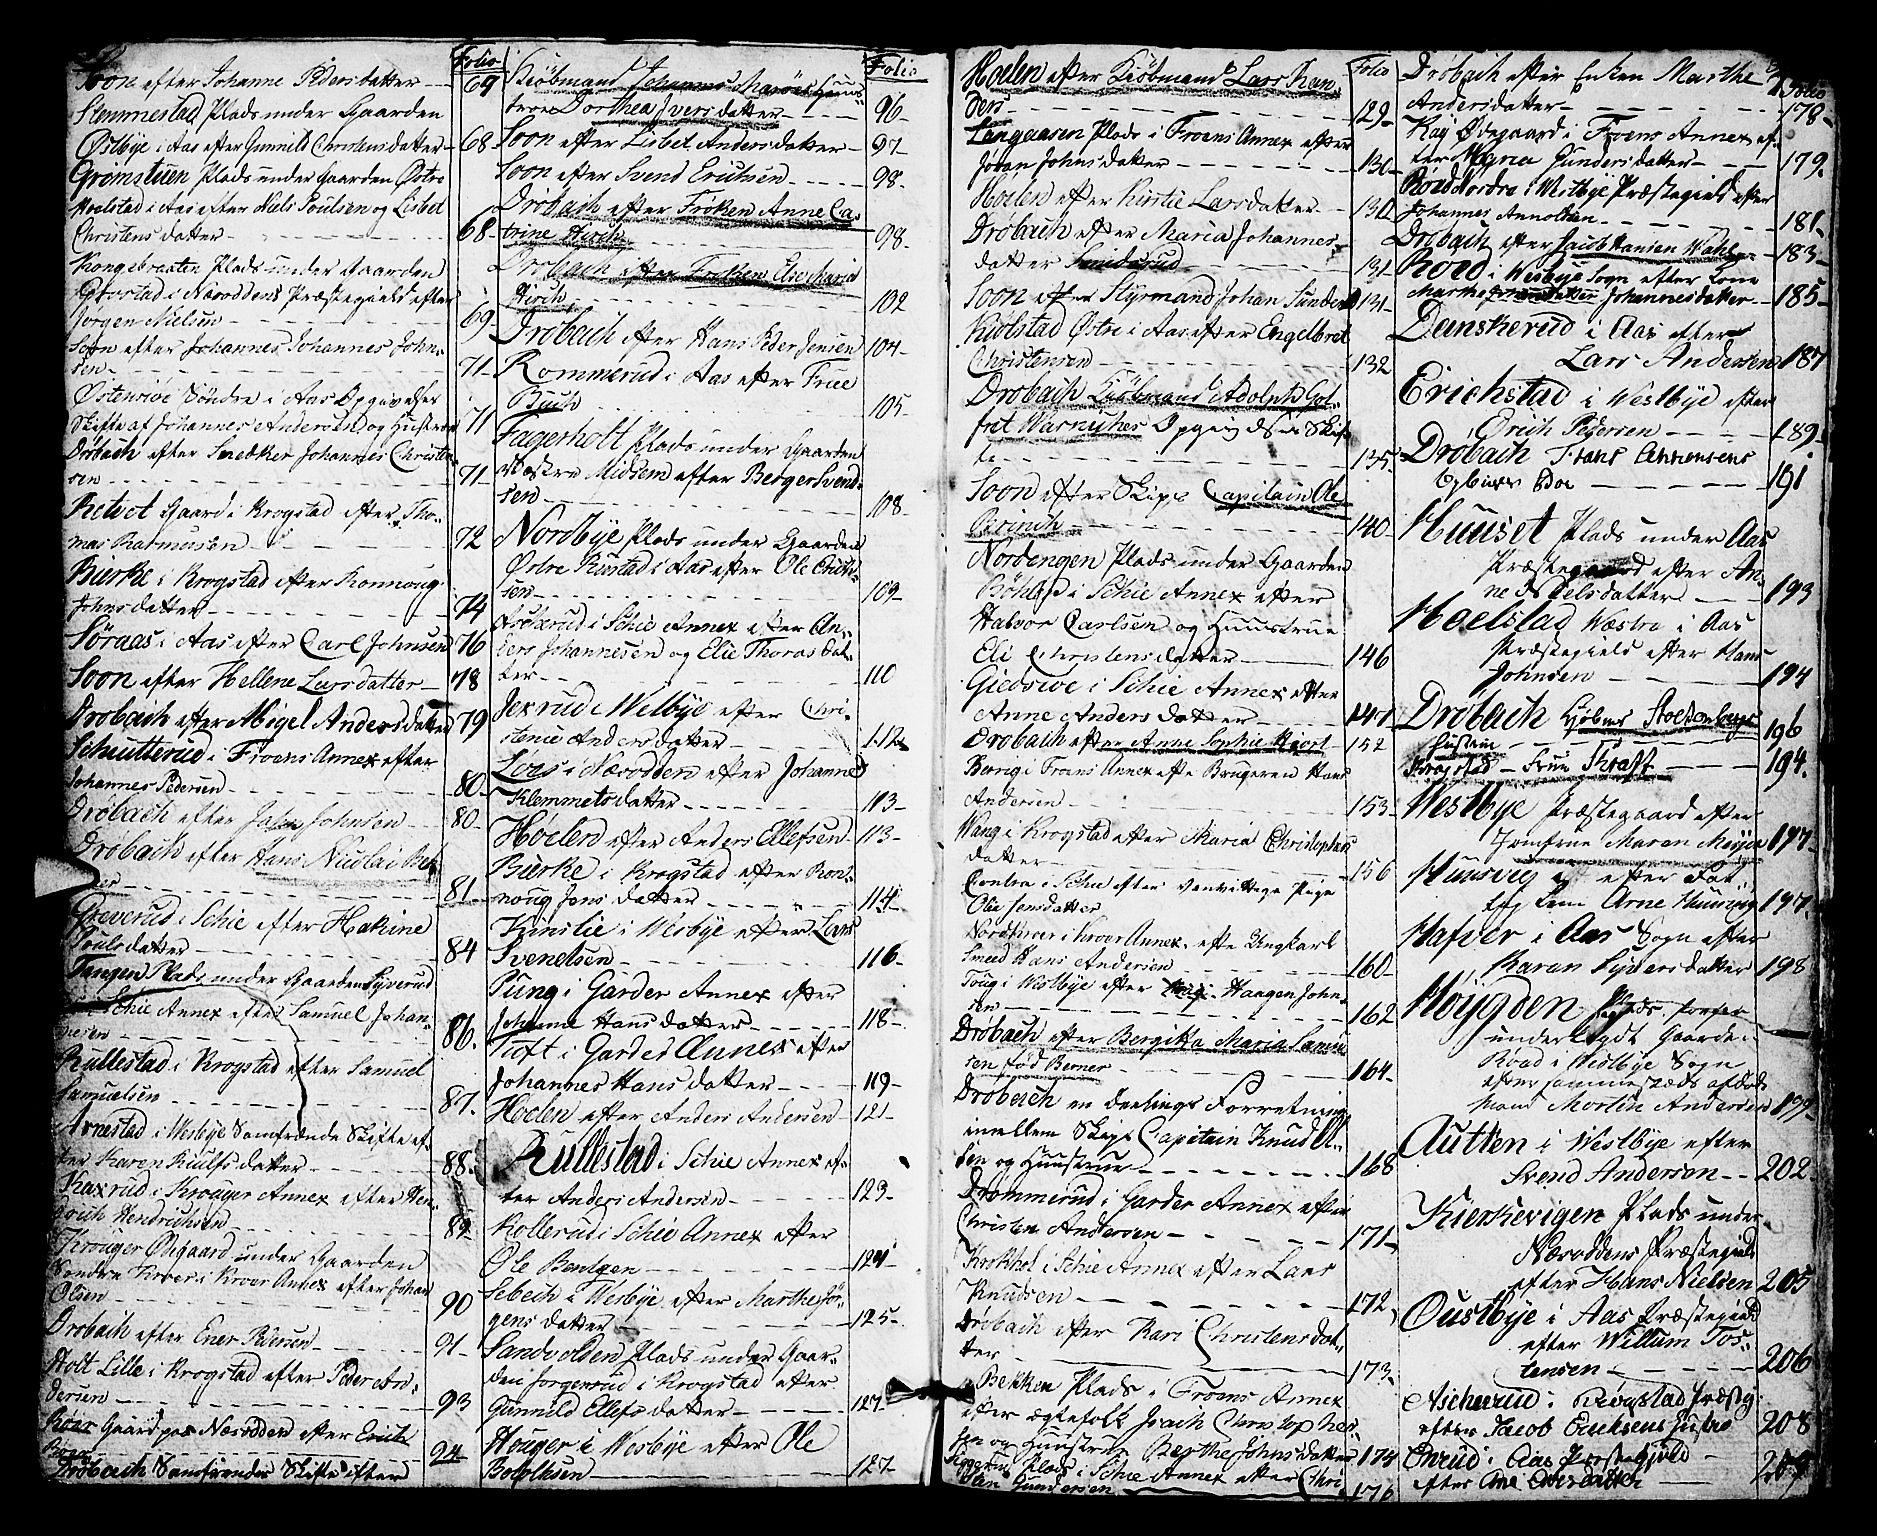 Folio
Soon efter Johanne Pedersdatter 69
Stemmestad Plads under Gaarden
Østbÿe i Aas efter Gunnild Christensdatter 68
Gromstuen Plads under Gaarden Østre
Hoelstad i Aas efter Niels Poulsen og Lisbet
Christensdatter 68
Kongebraaten Plads under Gaarden
i Næsoddens Præstegield efter
Jørgen Nielsen 69
Soon efter Johannes Johannes John-
sen 71
Østensiöe Søndre i Aas Opgivelser
Skifte af Johannes Andersen og Hustrue 71
Drøbach efter Snedker Johannes Christen-
sen 71
Ketvet Gaard i Krogstad efter Tho-
mas Rasmusen 72
Burke i Krogstad efter Ronnoug
Johnsdatter 74
Söraas i Aas efter Carl Johnsen 76
Soon efter Hellene Larsdatter 78
Drøbach efter Abigel Andersdatter 79
Scheutterud i Froens Annex efter
Johannes Pedersen 80
Drøbach efter John Johnsen 80
Drøbach efter Hans Nicolai
81
Greverud i Schie efter Hakine
Poulsdatter 84
Tangen Plads under Gaarden Syverud
i Schie Annex efter Samuel Johan-
nesen 86
Rullestad i Krogstad efter Samuel
Samuelsen 87
Arnestad i Wesbÿe Samfrænde Skifte ef-
ter Karen Rulfsdatter 88
Kaxrud i Krouger Annex efter Hen-
drich Hendrichsen 89
Krouger Ødegaard under Gaarden
Søndre Kroer i Kroer Annex efter Johan
Olsen 90
Drøbach efter Ener Pedersen 91
Holt Lille i Krogstad efter Peder An-
dersen 93
Roer Gaard paa Næsodden efter Erich
94
Drøbach Samfrænde Skifte efter
Folio
Kiøbmand Johannes Huus-
troe Dorthea Iversdatter 96
Soon efter Lisbet Andersdatter 97
Soon efter Svend Erichsen 98
Drøbach efter Frøken Anne Ca-
trine Hirch 98
Drøbach efter Frøken Else Maria
Hirch 102
Drøbach efter Hans Peder Jensen 104
Rommerud i Aas efter Frue
Buch 105
Fagerholt Plads under Gaarden
Westre Midsem efter Berger Svend-
sen 108
Nordbÿe Plads under Gaarden
Østre Rustad i Aas efter Ole Erich-
sen 109
i Schie Annex efter An-
ders Johannesen og Elie Thorasdat-
ter 110
Jexrud i Wesbÿe efter Chri-
stence Andersdatter 112
Loes i Næsodden efter Johanne
Klemmetsdatter 113
Høelen efter Anders Ellefsen 113
Burke i Krogstad efter Ron-
noug Jonsdatter 114
Kinslie i Wesbÿe efter Lars
Svendsen 116
Pung i Garder Annex efter
Johanne Hansdatter 118
Tuft i Garder Annex efter
Johannes Hansdatter 119
Hoelen efter Anders Andersen 121
Rullestad i Schie Annex ef-
ter Anders Andersen 123
Kollerud i Schie Annex efter
Ole Bentsen 124
Sebech i Wesbÿe efter Marthe Jör-
gensdatter 125
Sandvolden Plads under Gaar-
den Jorgensrud i Krogstad efter
Gunnild Ellefsdatter 127
Houger i Wesbÿe efter Ole
Botolhsen 127
Folio
Hoelen efter Kiøbmand Lars Han-
sen 129
Langaasen Plads i Froens Annex efter
Joran Johnsdatter 130
Hoelen efter Kirstie Larsdatter 130
Drøbach efter Maria Johannes-
datter Smiderud 131
Soon efter Styrmand Johan Sunder 131
Kiølstad Østre i Aas efter Engelbret
Christensen 132
Drøbach Kiøbmand Adolph Got-
frit Warnuhes Opgivelse Skif-
te 135
Soon efter Skips Capitain Ole
Brinch 140
Nordengen Plads under Gaarden
Bøhler i Schie Annex efter
Halvor Carlsen og Huustrue
Eli Christensdatter 146
Giedsioe i Schie Annex efter
Anne Andersdatter 141
Drøbach efter Anne Sophie Hiort 152
Berrig i Froens Annex efte Brugeren Hans
Andersen 153
Wang i Krogstad efter Maria Christophers
datter 156
Contra i Schie efter vanvittige Pige
Olia Jensdatter
i Kroer Annex efte Ungkarl
Smed Hans Andersen 160
Toug i Westbÿe efter Haagen John-
sen 162
Drøbach efter Bergitha Maria Samu-
sen fød Berner 164
Drøbach en Deelings Forretning
imellem Skips Capitain Knud Ol-
sen og Huustrue 168
Drømmerud i Garder Annex efter
Christen Andersen 171
Krokhol i Schie Annex efter Lars
Knudsen 172
Drøbach efter Kari Christensdat-
ter 173
Bekken Plads i Froens Annex
efter Ægtefolk Isach Christopher-
sen og Huustrue Berthe Johnsdatter 174
Plads i Schie Annex efter Chri-
sten Gundersen 176
Folio
Drøbach efter Enken Marthe
Andersdatter 178
Kaÿ Ødegaard i Froens Annex ef-
ter Magna Gundersdatter 179
Røed Nordre i Westbÿe Præstegield efter
Johannes Arnoldsen 181
Drøbach efter Jacob Hansen 183
Roed i Wesbÿe Sogn efter Kone
Marthe Johannesdatter 185
Danskerud i Aas efter
Lars Andersen 187
Erichstad i Westbÿe efter
Erich Pedersen 189
Drøbach Frans
191
Huuset Plads under Aas
Præstegaard efter An-
ne Nielsdatter 193
Hoelstad Wæstre i Aas
Præstegield efter Hans
Johnsen 194
Drøbach Kjøbm Stoltenbergs
Hustrue 196
Krogstad – Frue Thrast 194
Westbÿe Præstegaard efter
Jomfrue Maren Meÿer 197
Huusvig efter Fat-
tig Lem Arne Huusvig 197
Hafver i Aas Sogn efter
Karen Syversdatter 198
Høÿgden Plads
under Gaarden
Røed i Westbÿe Sogn
efter sammestæds afdøde
Mand Morten Andersen 199
Autten i Westbÿe efter
Svend Andersen 202
Kierkevigen Plads under
Næsoddens Præstegield
efter Hans Nielsen 205
Oustbÿe i Aas Præstegield
efter Willum Tos-
tensen 206
Ascherud i Krogstad Præstg
efter Jacob Erichsens Hustro 208
i Aas Præstegjæld
efter Ane 209